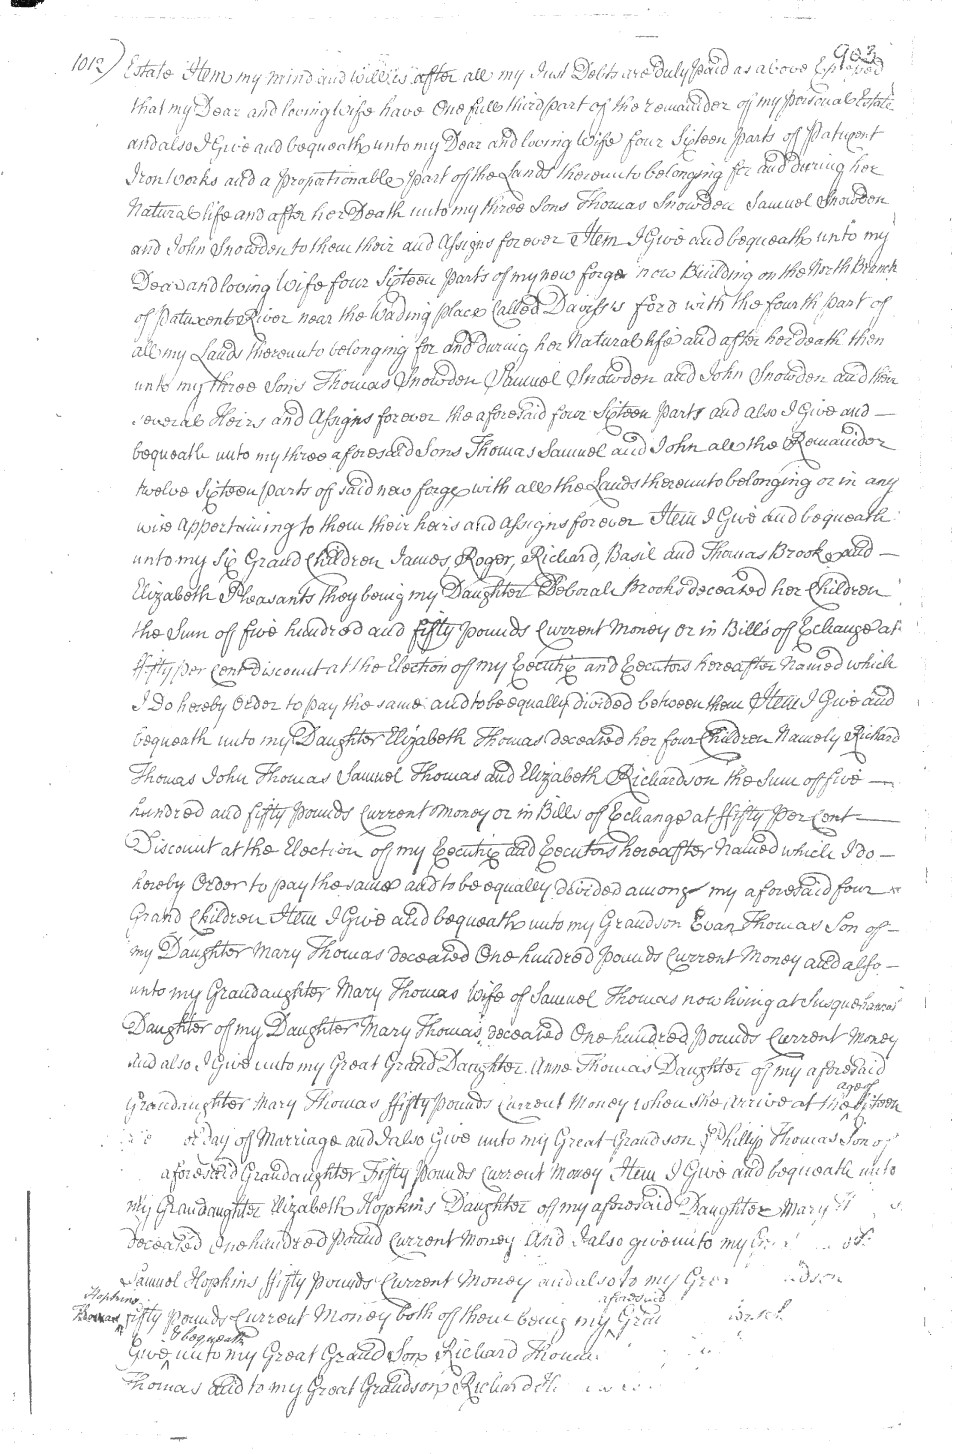 1012) 903
Estate Item my mind and will is after all my Just Debts are Duly paid as above Expressed
that my Dear and loving Wife have One full third part of the remainder of my personal Estate
and also I Give and bequeath unto my Dear and loving Wife four Sixteen parts of Patuxent
Iron Works and a proportionable part of the Lands thereunto belonging for and during her
Natural life and after her Death unto my three Sons Thomas Snowden Samuel Snowden
and John Snowden to them their and Assigns forever Item I Give and bequeath unto my
Dear and loving Wife four Sixteen parts of my new forge now Building on the North Branch
of Patuxent River near the Wading place Called Daviss's ford with the fourth part of
all my Lands thereunto belonging for and during her Natural life and after her death then
unto my three Sons Thomas Snowden Samuel Snowden and John Snowden and their
several Heirs and Assigns forever the aforesaid four Sixteen parts and also I Give and —
bequeath unto my three aforesaid Sons Thomas Samuel and John all the Remainder
twelve Sixteen parts of said new forge with all the Lands thereunto belonging or in any
wise Appertaining to them their heirs and Assigns forever Item I Give and bequeath
unto my Six Grand Children James, Roger, Richard, Basil and Thomas Brooke and —
Elizabeth Pleasants they being my Daughter Deborah Brooks deceased her Children
the Sum of five hundred and fifty pounds Current Money or in Bills of Exchange at
ffifty per Cent Discount at the Election of my Executrix and Executors hereafter Named which
I Do hereby Order to pay the same and to be equally divided between them Item I Give and
bequeath unto my Daughter Elizabeth Thomas deceased her four Children Namely Richard
Thomas John Thomas Samuel Thomas and Elizabeth Richardson the Sum of five —
hundred and fifty pounds Current Money or in Bills of Exchange at ffifty per Cent —
Discount at the Election of my Executrix and Executors hereafter Named which I do —
hereby Order to pay the same and to be equally divided among my aforesaid four
Grand Children Item I Give and bequeath unto my Grandson Evan Thomas Son of —
my Daughter Mary Thomas deceased One hundred pounds Current Money and also —
unto my Grandaughter Mary Thomas Wife of Samuel Thomas now living at Susquehanas
Daughter of my Daughter Mary Thomas deceased One hundred pounds Current Money
and also I Give unto my Great Grand Daughter Anne Thomas Daughter of my aforesaid
age of
Grandaughter Mary Thomas ffifty pounds Current Money when she arrive at the Sixteen
or day of Marriage and I also Give unto my Great Grandson Phillip Thomas Son of
aforesaid Grandaughter Fifty pounds Current Money Item I Give and bequeath unto
my Grandaughter Elizabeth Hopkins Daughter of my aforesaid Daughter Mary
deceased One hundred pound Current Money And I also give unto my
Samuel Hopkins ffifty pounds Current Money and also to my
Hopkins aforesaid
fifty pounds Current Money both of them being my
& bequeath
Give unto my Great Grand Son Richard
Thomas and to my Great Grandson Richard